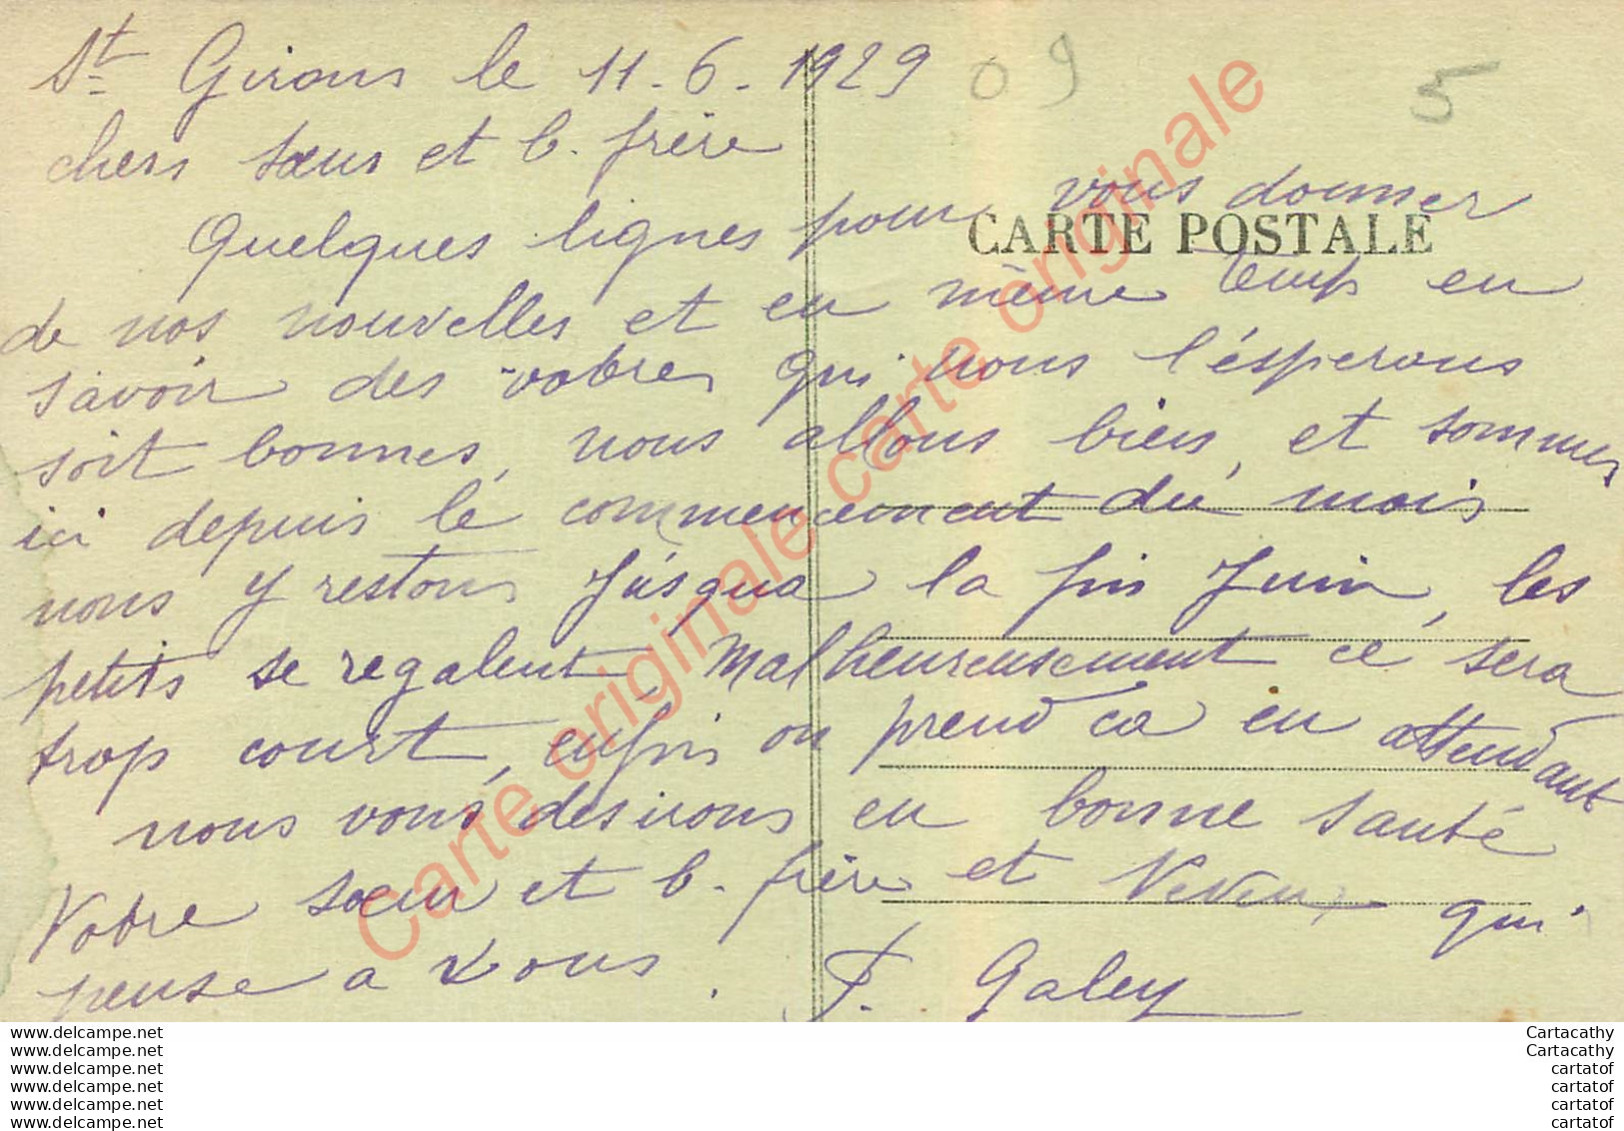 St Girons le 11.6.1929
09
5
chers sœurs et b. frère
Quelques lignes pour vous donner
CARTE POSTALE
de nos nouvelles et en même temp en
savoir des votres qui nous l'ésperons
soit bonnes, nous allons bien, et sommes
ici depuis le commencement du mois
nous y restons Jusqua la fin Juin, les
petits se regalent, Malheureusement ce sera
trop court, enfin on prend ca en attendant
nous vous desirons en bonne santé
Votre sœur et b. frère et Neveux qui
pense a vous. F. Galey
Carte originale carte originale
www.delcampe.net
www.delcampe.net
www.delcampe.net
www.delcampe.net
www.delcampe.net
www.delcampe.net
Cartacathy
Cartacathy
cartatof
cartatof
cartatof
cartatof